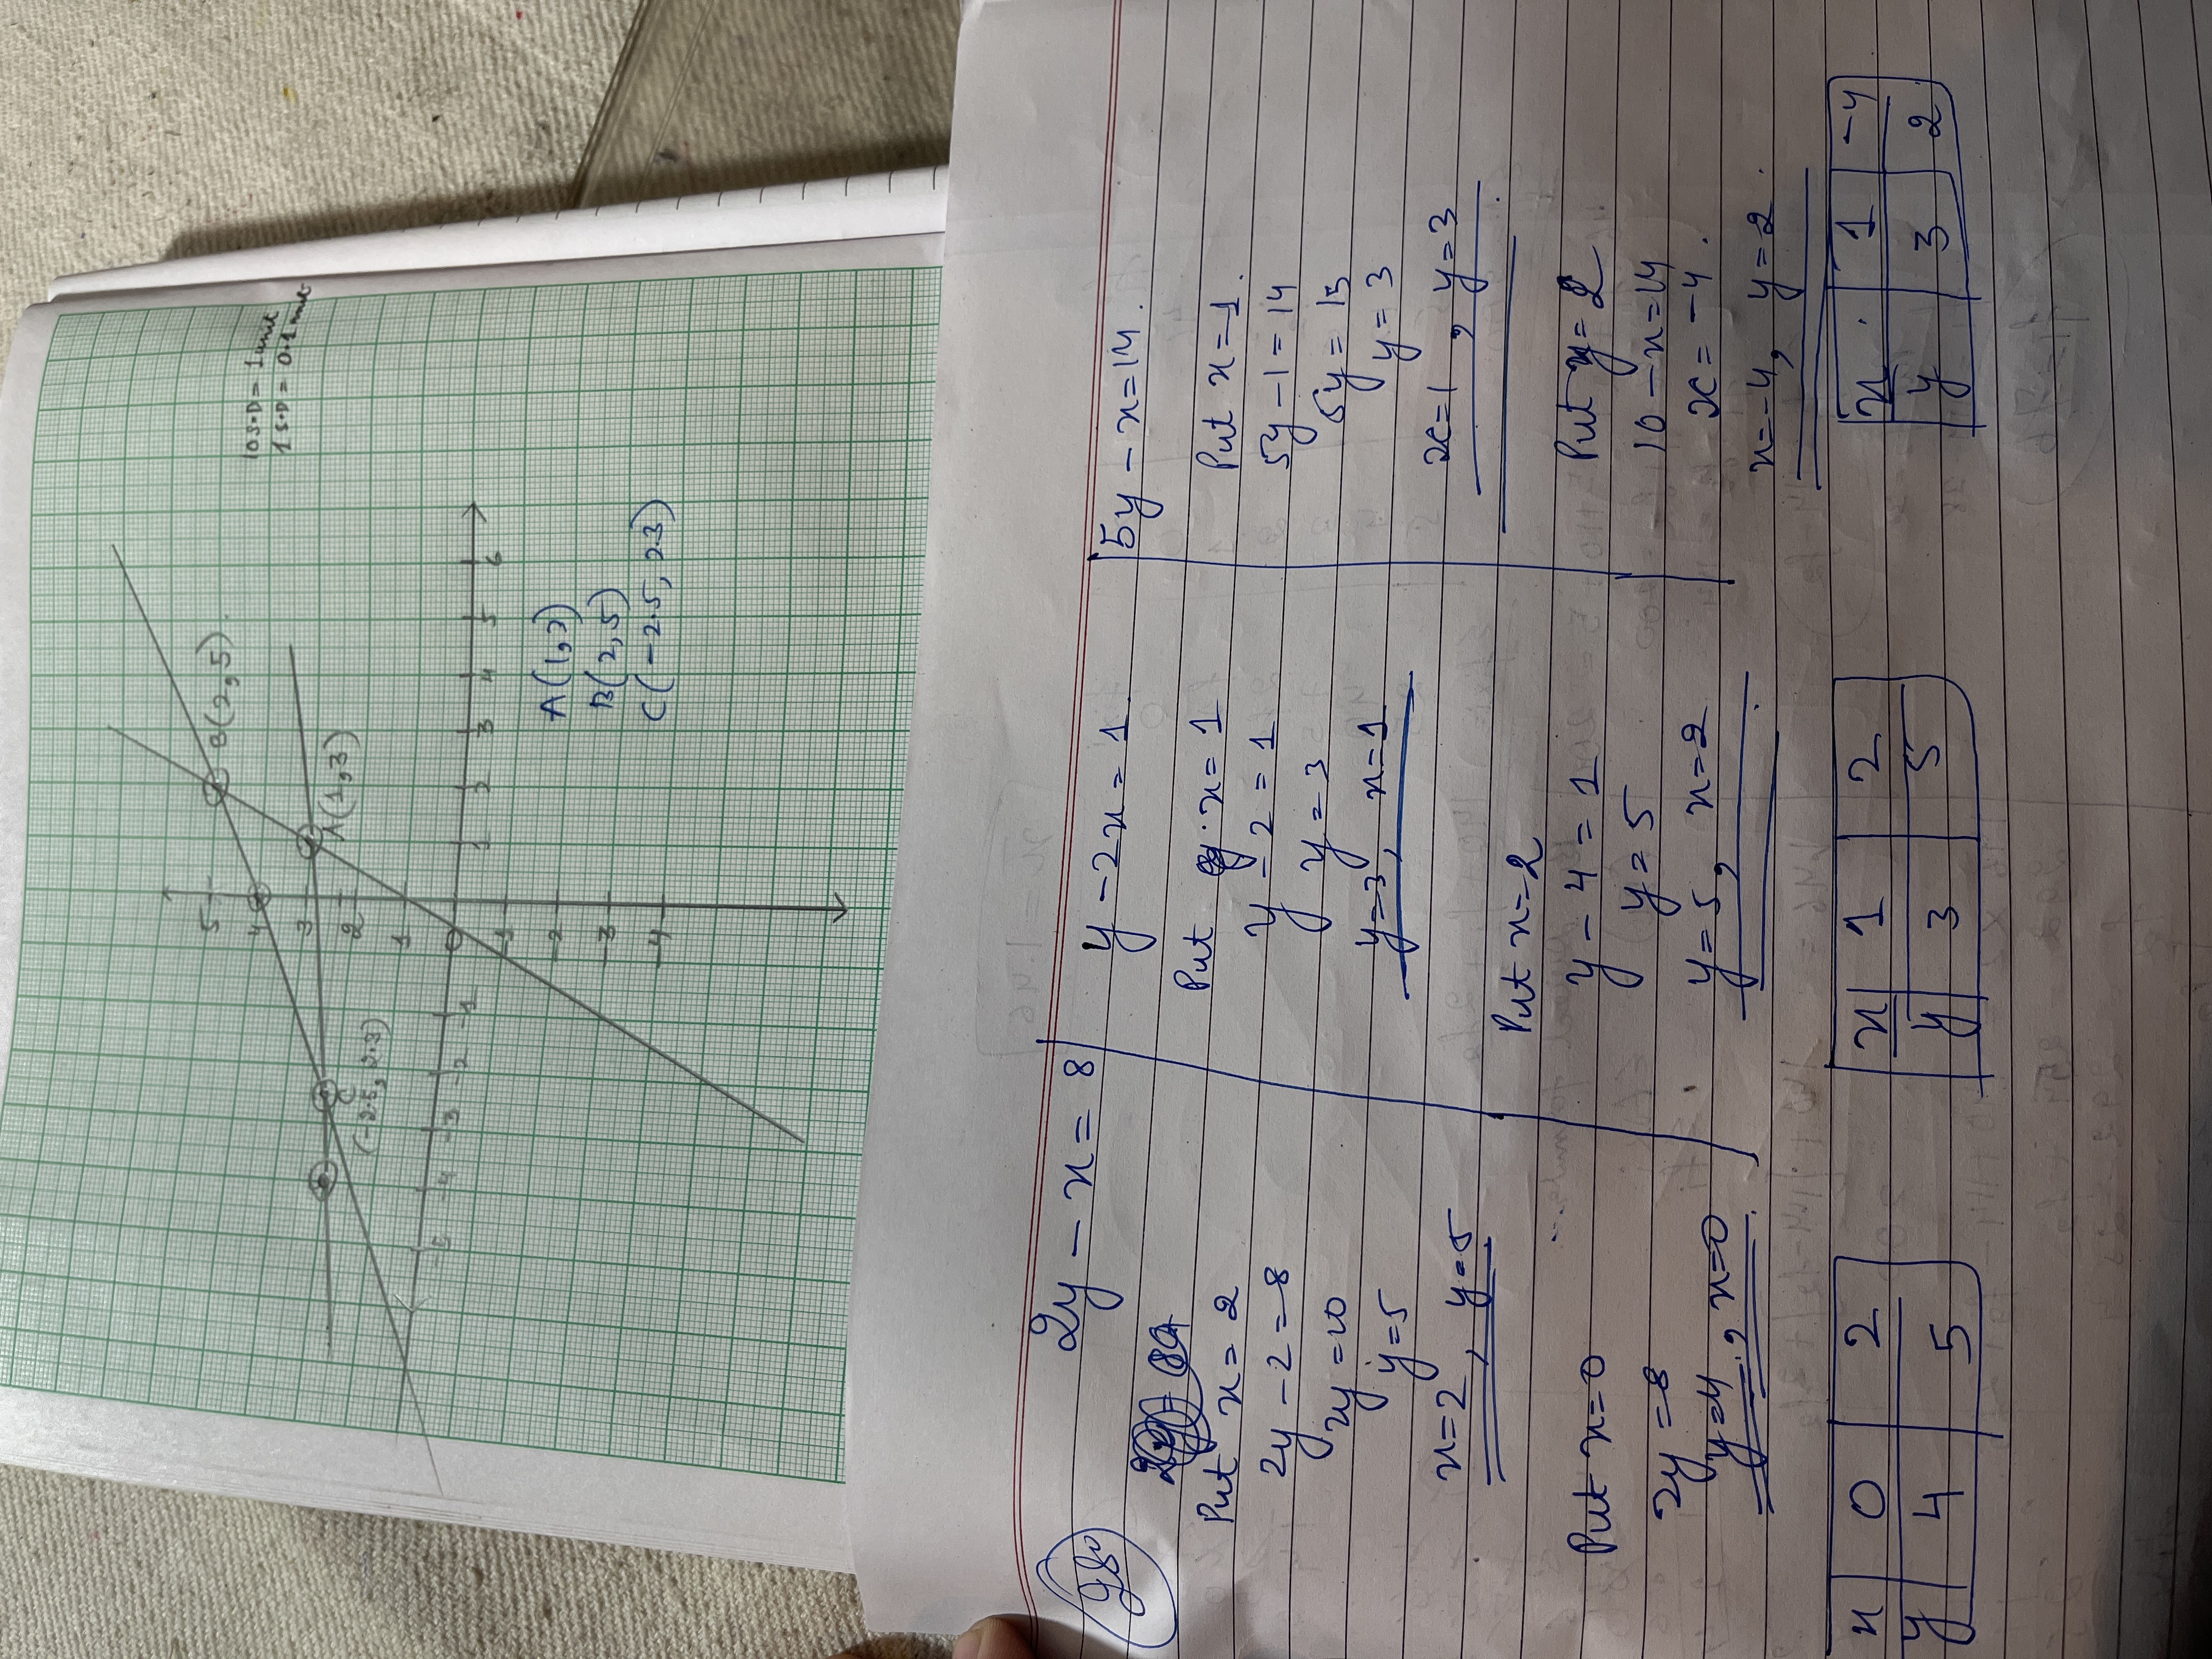 10 S.D = 1 unit
1 S.D = 0.1 unit
B(2,5).
A(1,3)
C
(-2.5, 2.3)
5
4
3
2
1
0
-1
-2
-3
-4
5 -4 -3 -2 -1 1 2 3 4 5 6
A(1,3)
B(2,5)
C(-2.5, 2.3)
2y - x = 8
Put x = 2
2y - 2 = 8
2y = 10
y = 5
x = 2, y = 5
Put x = 0
2y = 8
y = 4, x = 0
x 0 2
y 4 5
y - 2x = 1
Put x = 1
y - 2 = 1
y = 3
y = 3, x = 1
Put x = 2
y - 4 = 1
y = 5
y = 5, x = 2
x 1 2
y 3 5
5y - x = 14.
Put x = 1.
5y - 1 = 14
5y = 15
y = 3
x = 1, y = 3
Put y = 2
10 - x = 14
x = -4.
x = -4, y = 2.
x 1 -4
y 3 2